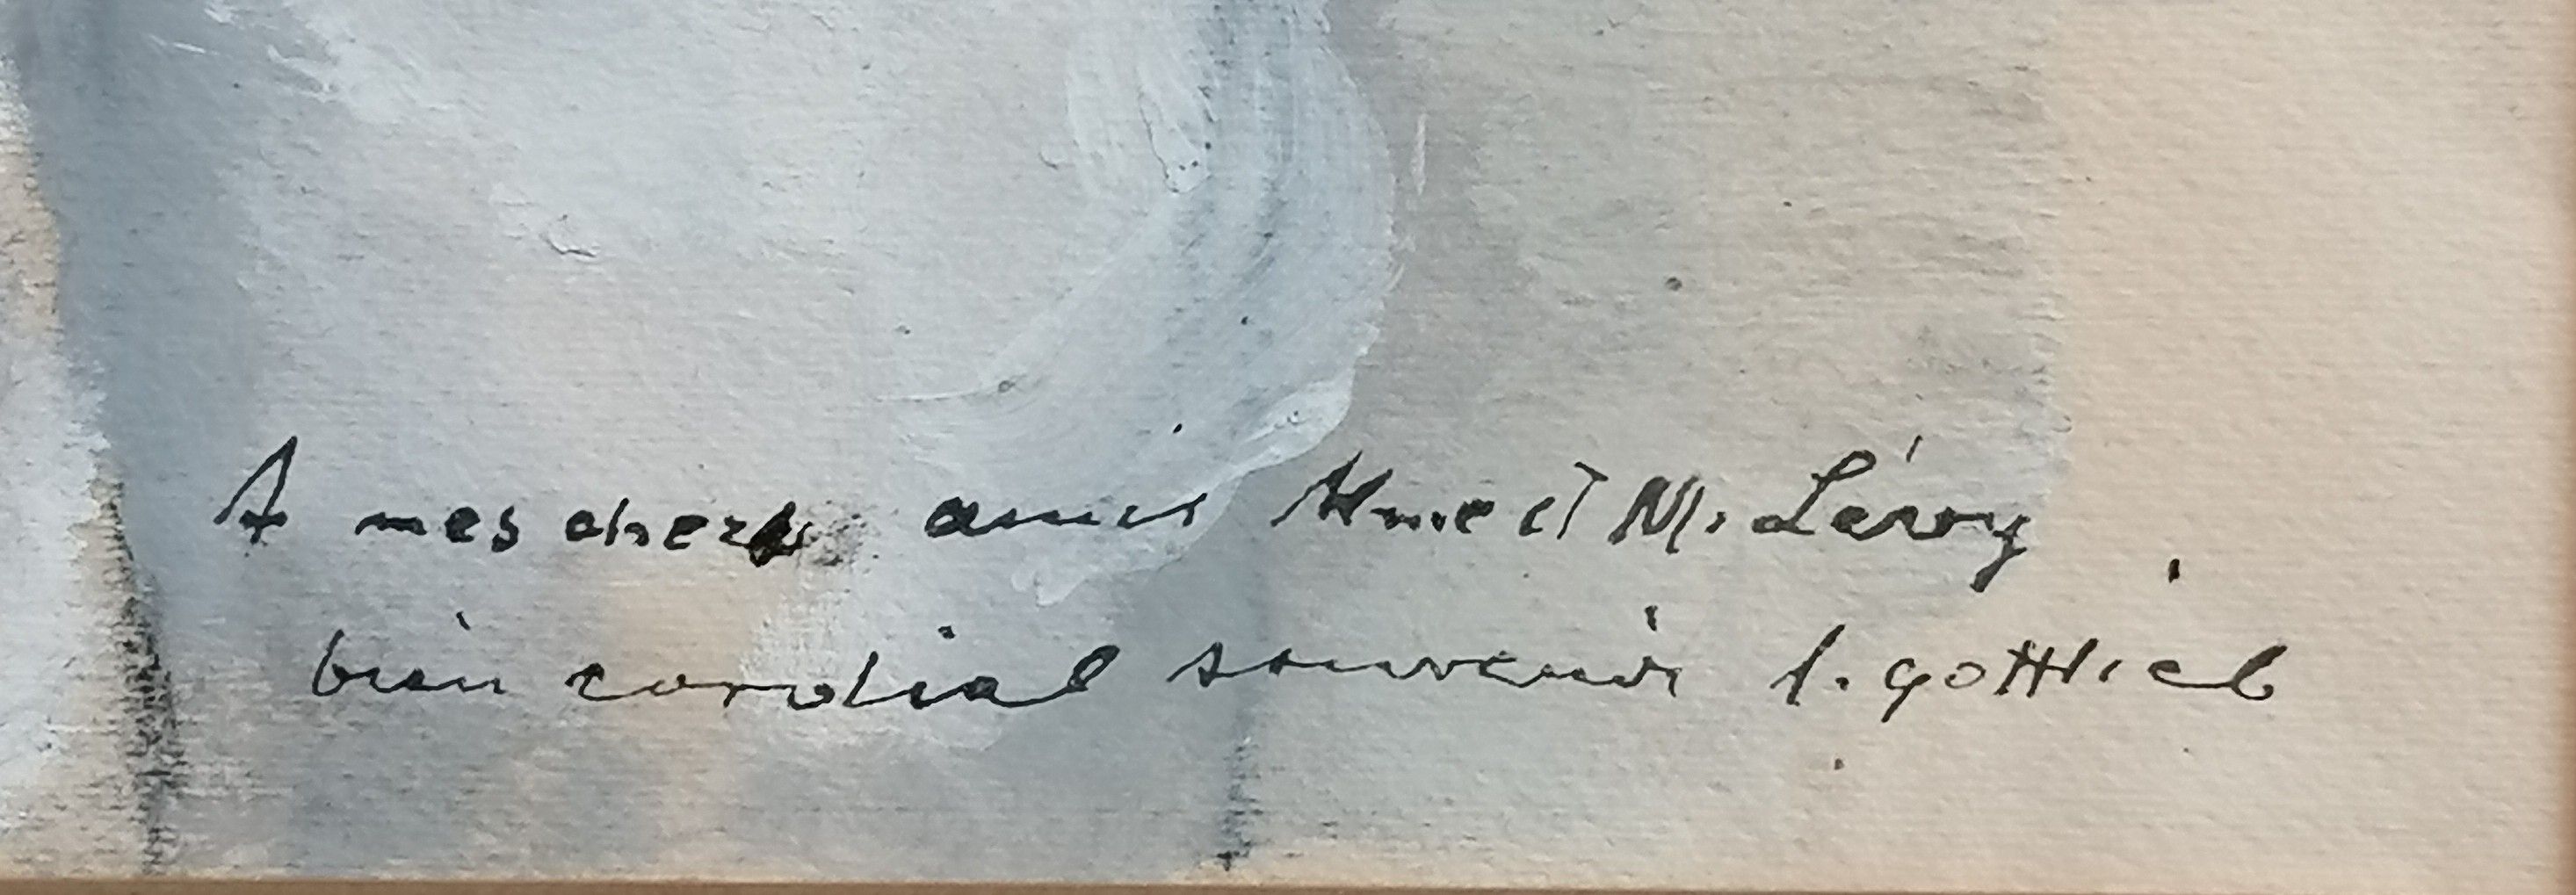 A mes chers amis Mme et M. Lévy
bien cordial souvenir l. gottlieb